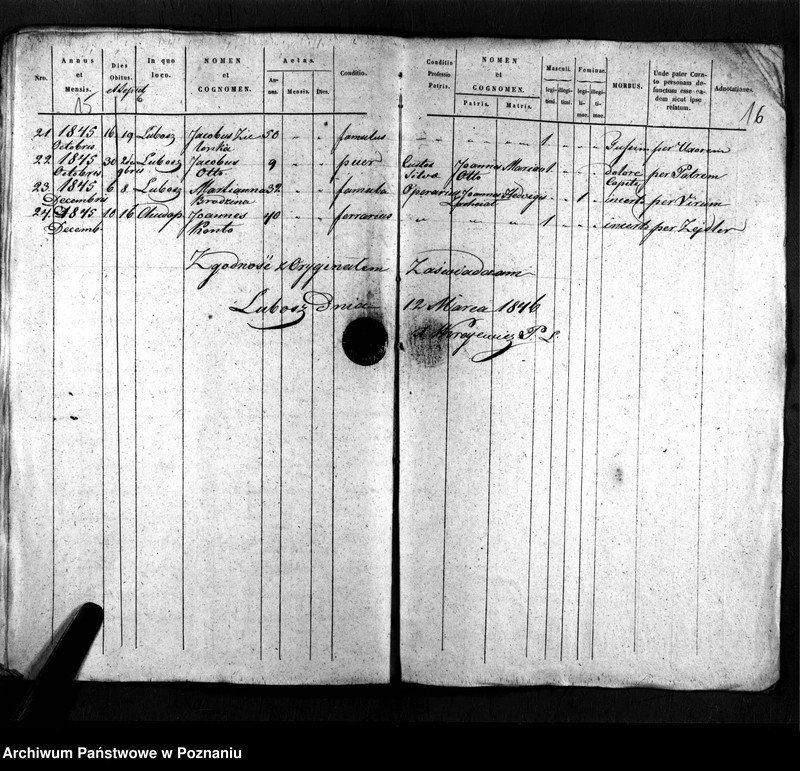 Nro.
Annus et Mensis.
Dies Obitus. et Sepult.
In quo loco.
NOMEN et COGNOMEN.
Aetas.
Annus. Mensis. Dies.
Conditio.
Conditio Professio Patris.
NOMEN et COGNOMEN.
Patris. Matris.
Masculi. Feminae.
legitimi. illegitimi. legitimae. illegitimae.
MORBUS.
Unde pater Curato personam defunctam esse eadem sicut ipse relatum.
Adnotationes.
15
16
21 1845 16 19 Lubosz Jacobus 50 " " famulus " " " " 1 " " " per Uxorem
Octobris
22. 1845 30 Lubosz Jacobus 9 " " puer Custos Joannes Mariana 1 " " " dolore per Patrem
Octobris 9bris Otto Silva Otto Capitis
23. 1845 6 8 Lubosz Marianna 32 " " famula Operarius Joannes Hedvigis " " 1 " incerto per Virum
Decembris Brodzina
24. 1845 10 16 Joannes 40 " " ferrarius " " " " 1 " " " incerto per Zejdler
Decemb. Konto
Zgodność z Oryginałem Zaświadczam
Lubosz Dnia 12 Marca 1846
Archiwum Państwowe w Poznaniu